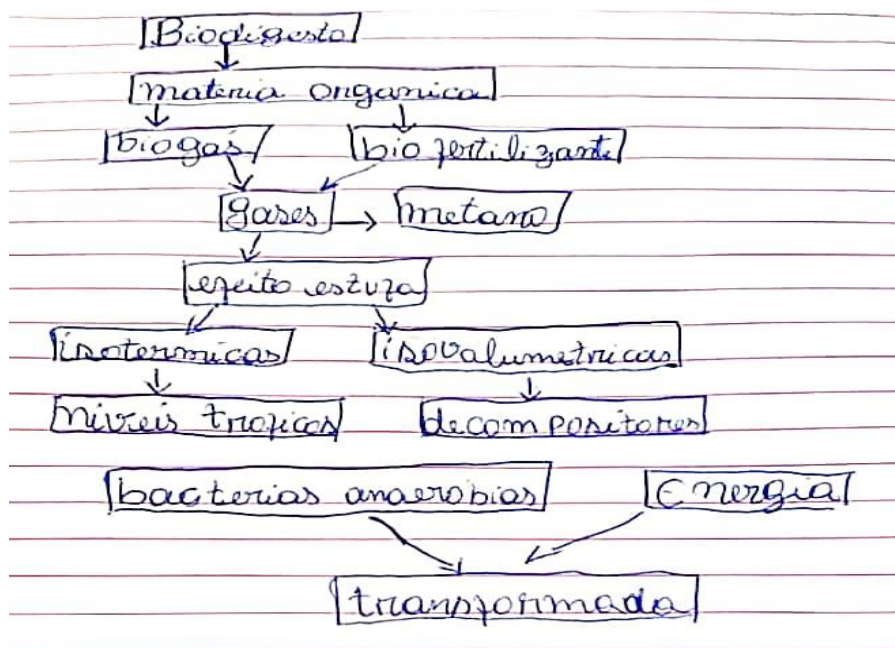 Biodigesto
materia organica
biogás bio fertilizante
gases metano
efeito estufa
isotermicas isovalumetricas
niveis troficos decompositores
bacterias anaerobias Energia
transformada